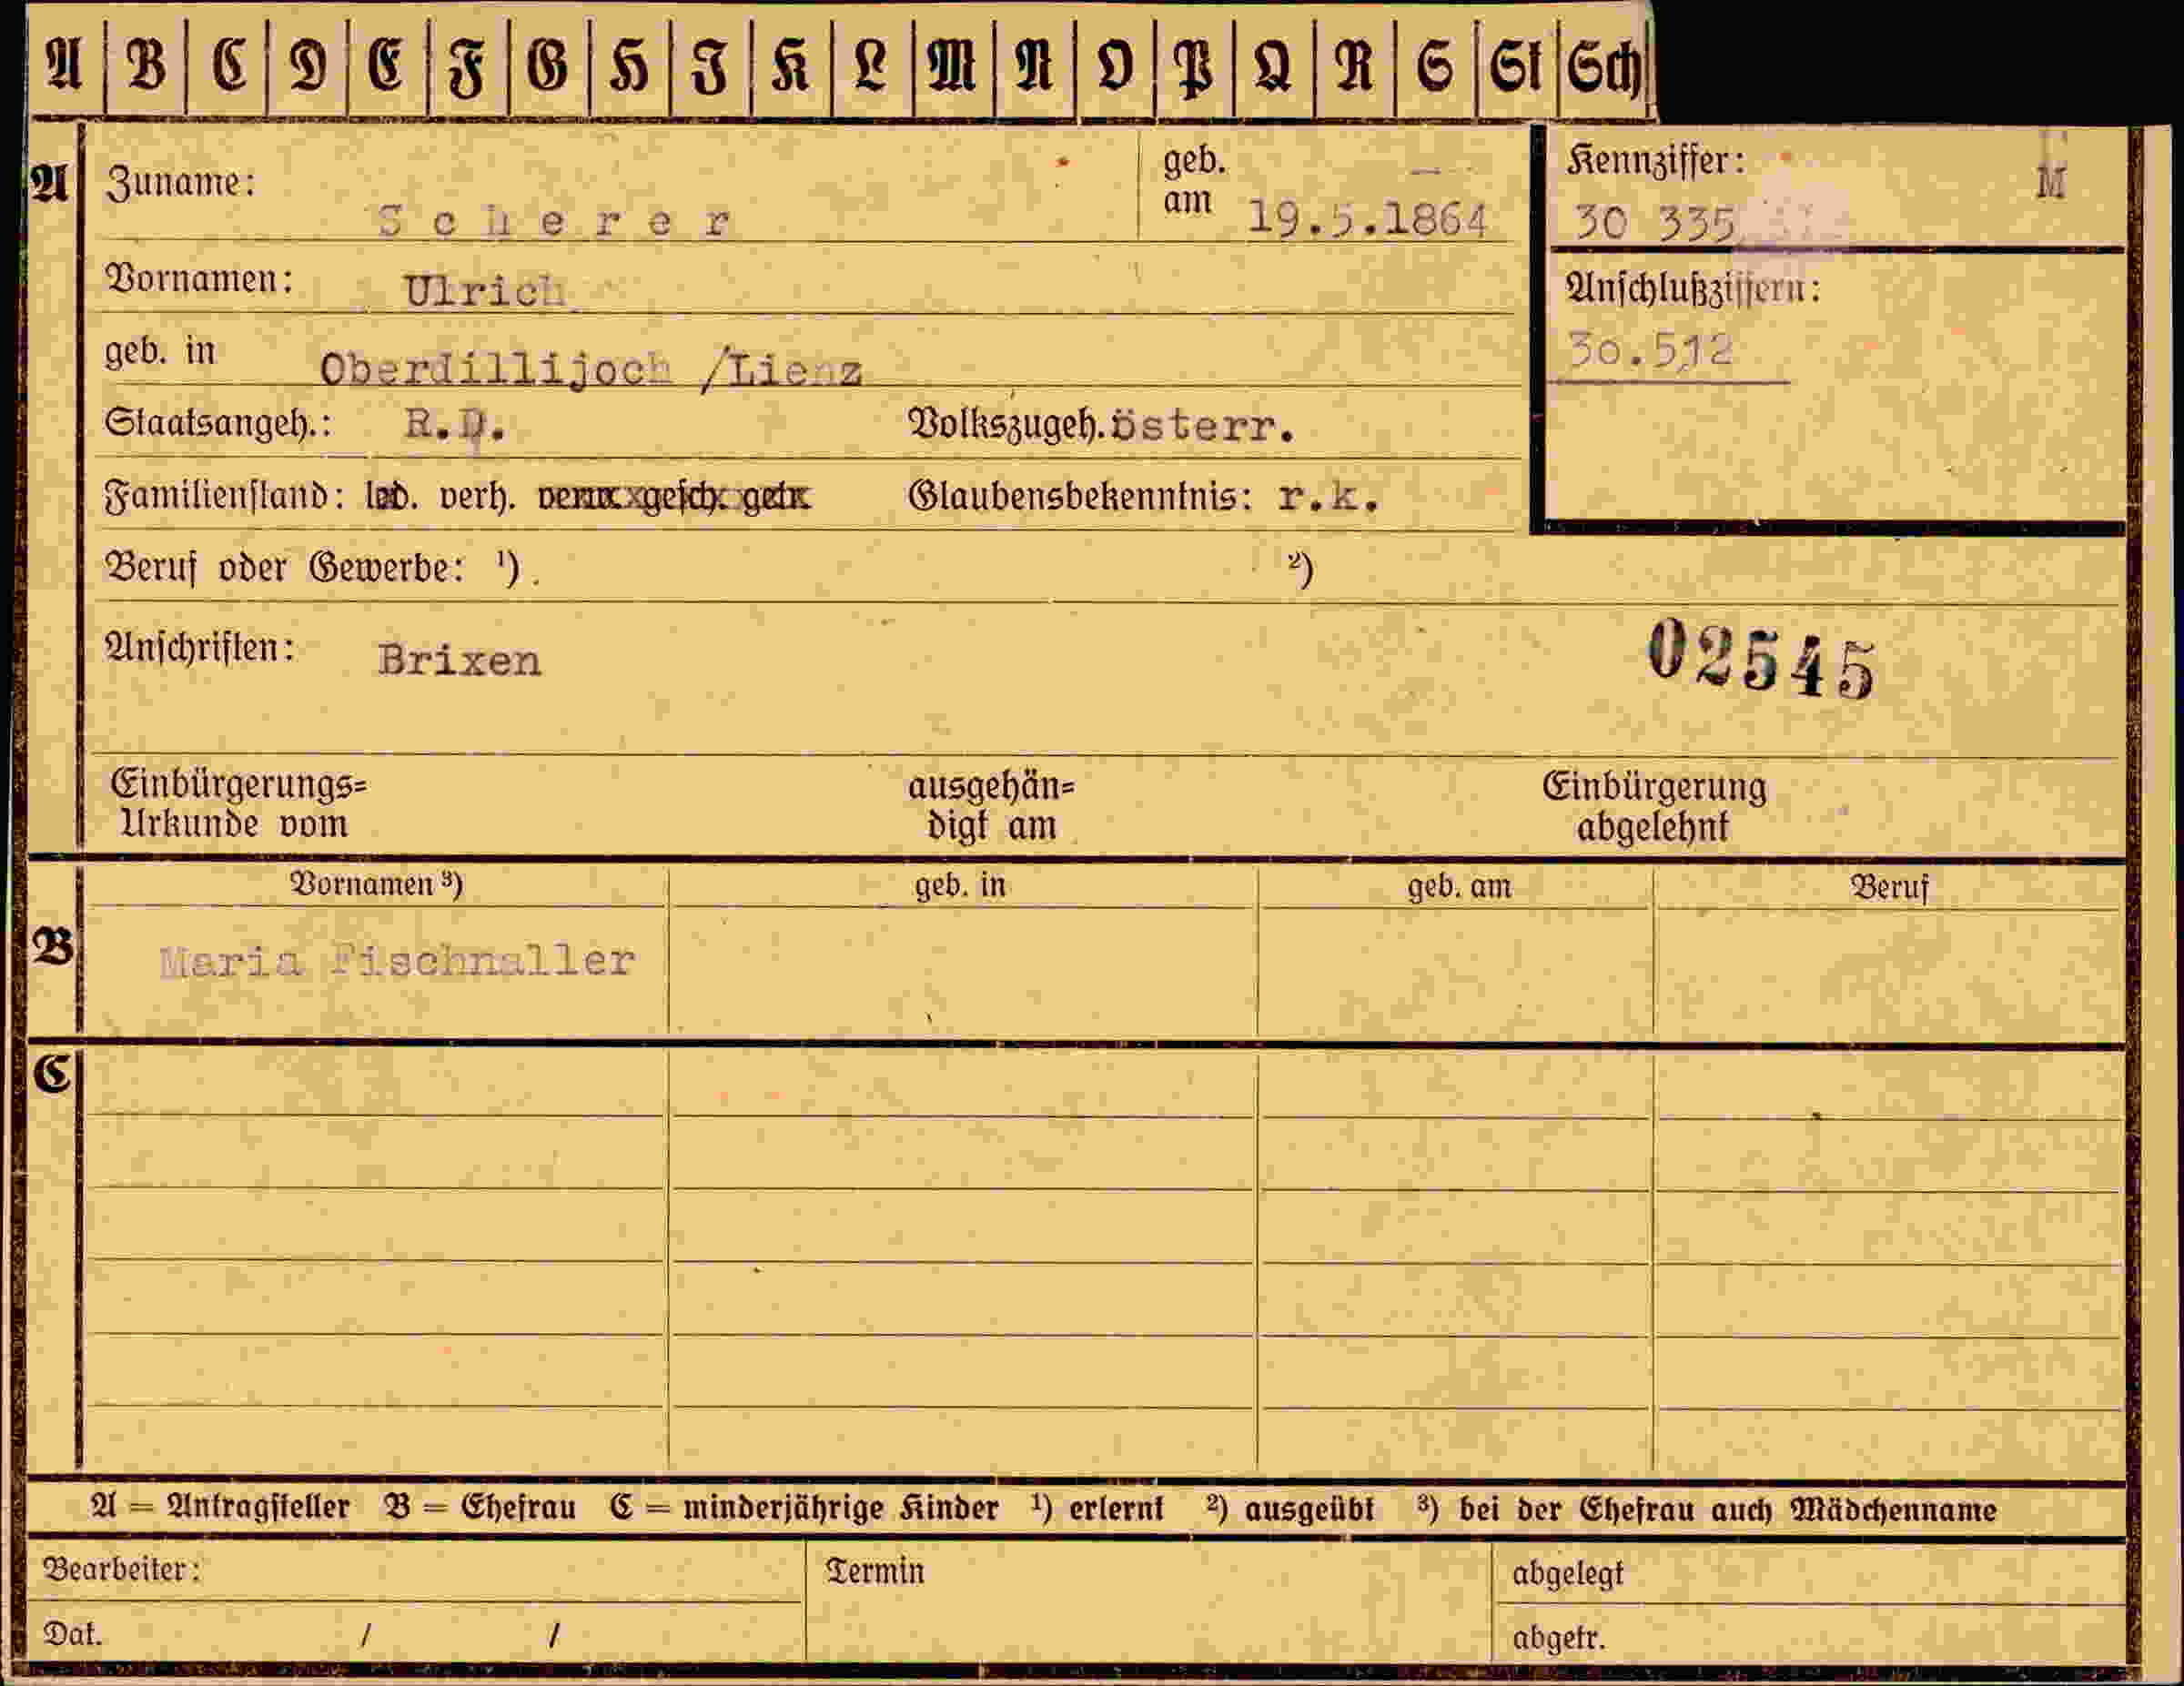 A B C D E F G H I K L M N O P Q R S St Sch
A Zuname: Scherer geb. am 19.5.1864 Kennziffer: M
30 335
Vornamen: Ulrich Anschlußziffern:
geb. in Oberdillijoch /Lienz 30.512
Staatsangeh.: R.D. Volkszugeh. österr.
Familienstand: led. verh. verw. gesch. getr. Glaubensbekenntnis: r.k.
Beruf oder Gewerbe: ¹) ²)
Anschriften: Brixen 02545
Einbürgerungs= ausgehän= Einbürgerung
Urkunde vom digt am abgelehnt
Vornamen ³) geb. in geb. am Beruf
B Maria Fischnaller
C
A = Antragsteller B = Ehefrau C = minderjährige Kinder ¹) erlernt ²) ausgeübt ³) bei der Ehefrau auch Mädchenname
Bearbeiter: Termin abgelegt
Dat. / / abgetr.